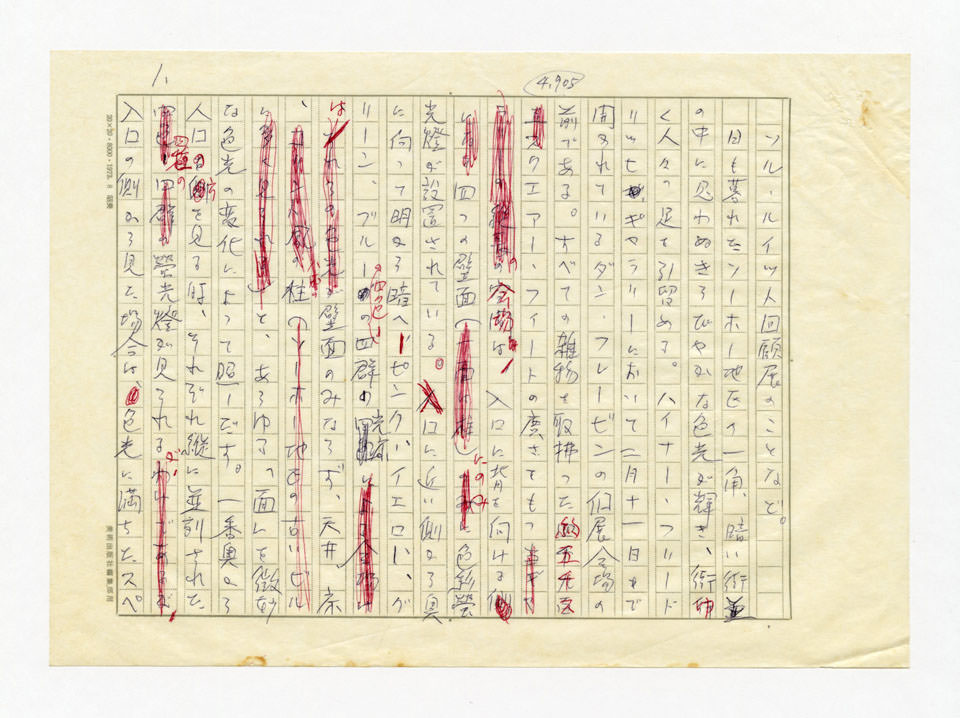 4,905
1.
ソル・ルイット回顧展のことなど。
日も暮れたソーホー地区の一角、暗い街並
の中に思わぬきらびやかな色光が輝き、街ゆ
く人々の足を引留める。ハイナー・フリード
リッヒ・ギャラリーにおいて二月十一日まで
開かれているダン・フレーヴィンの個展会場の
前である。すべての雑物を取拂った約五千
スクエアー・フィートの廣さをもつ
会場は、入口に背を向ける側
の四つの壁面にのみ色彩螢
光燈が設置されている。入口に近い側から奥
に向って明から暗へーピンク、イエロー、グ
リーン、ブルーの四色の四群の光源
は、壁面のみならず、天井、床
、柱(ソーホー地区の古いビル
と、あらゆる面を微妙
な色光の変化によって照しだす。一番奥から
入口の側を見る時、それぞれ縦に並列された
四種の螢光燈が見られるが、
入口の側から見た場合は、色光に満ちたスペ
20×20・8000・1973.8 昭美
美術出版社編集部用